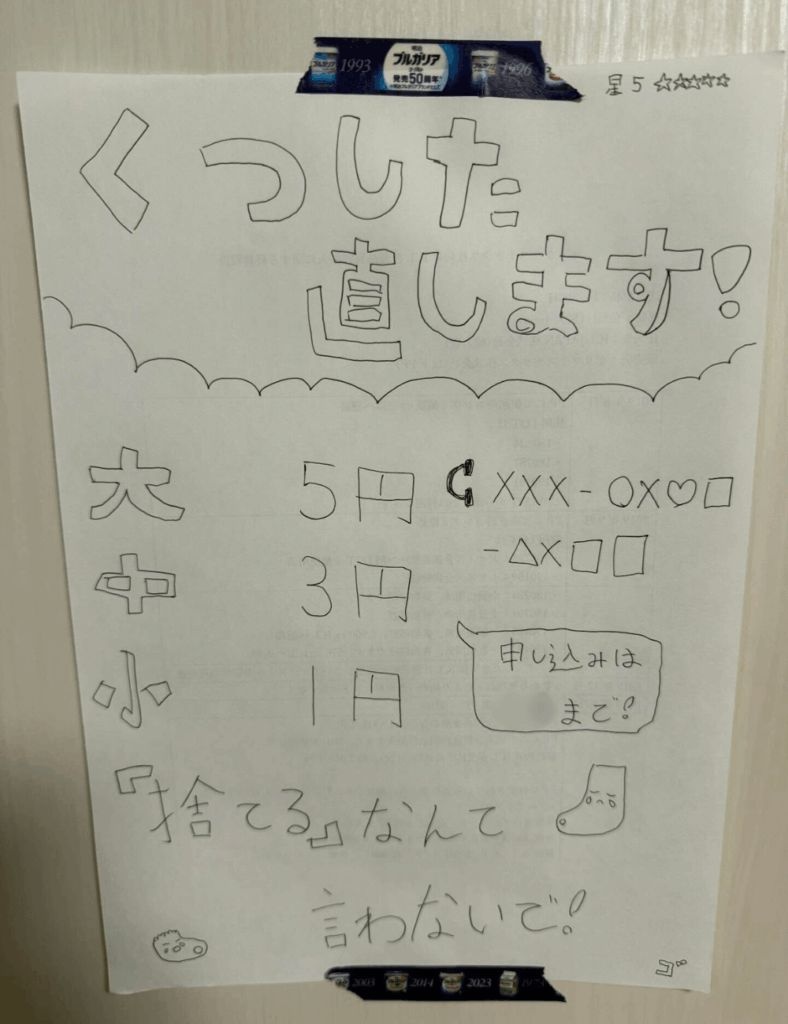 1993
明治
ブルガリア
ヨーグルト
発売50周年
1996
星5 ☆☆☆☆☆
くつした
直します!
大 5円
中 3円
小 1円
XXX-○X♡□
-△X□□
申し込みは
まで!
『捨てる』なんて
言わないで!
2003
2014
2023